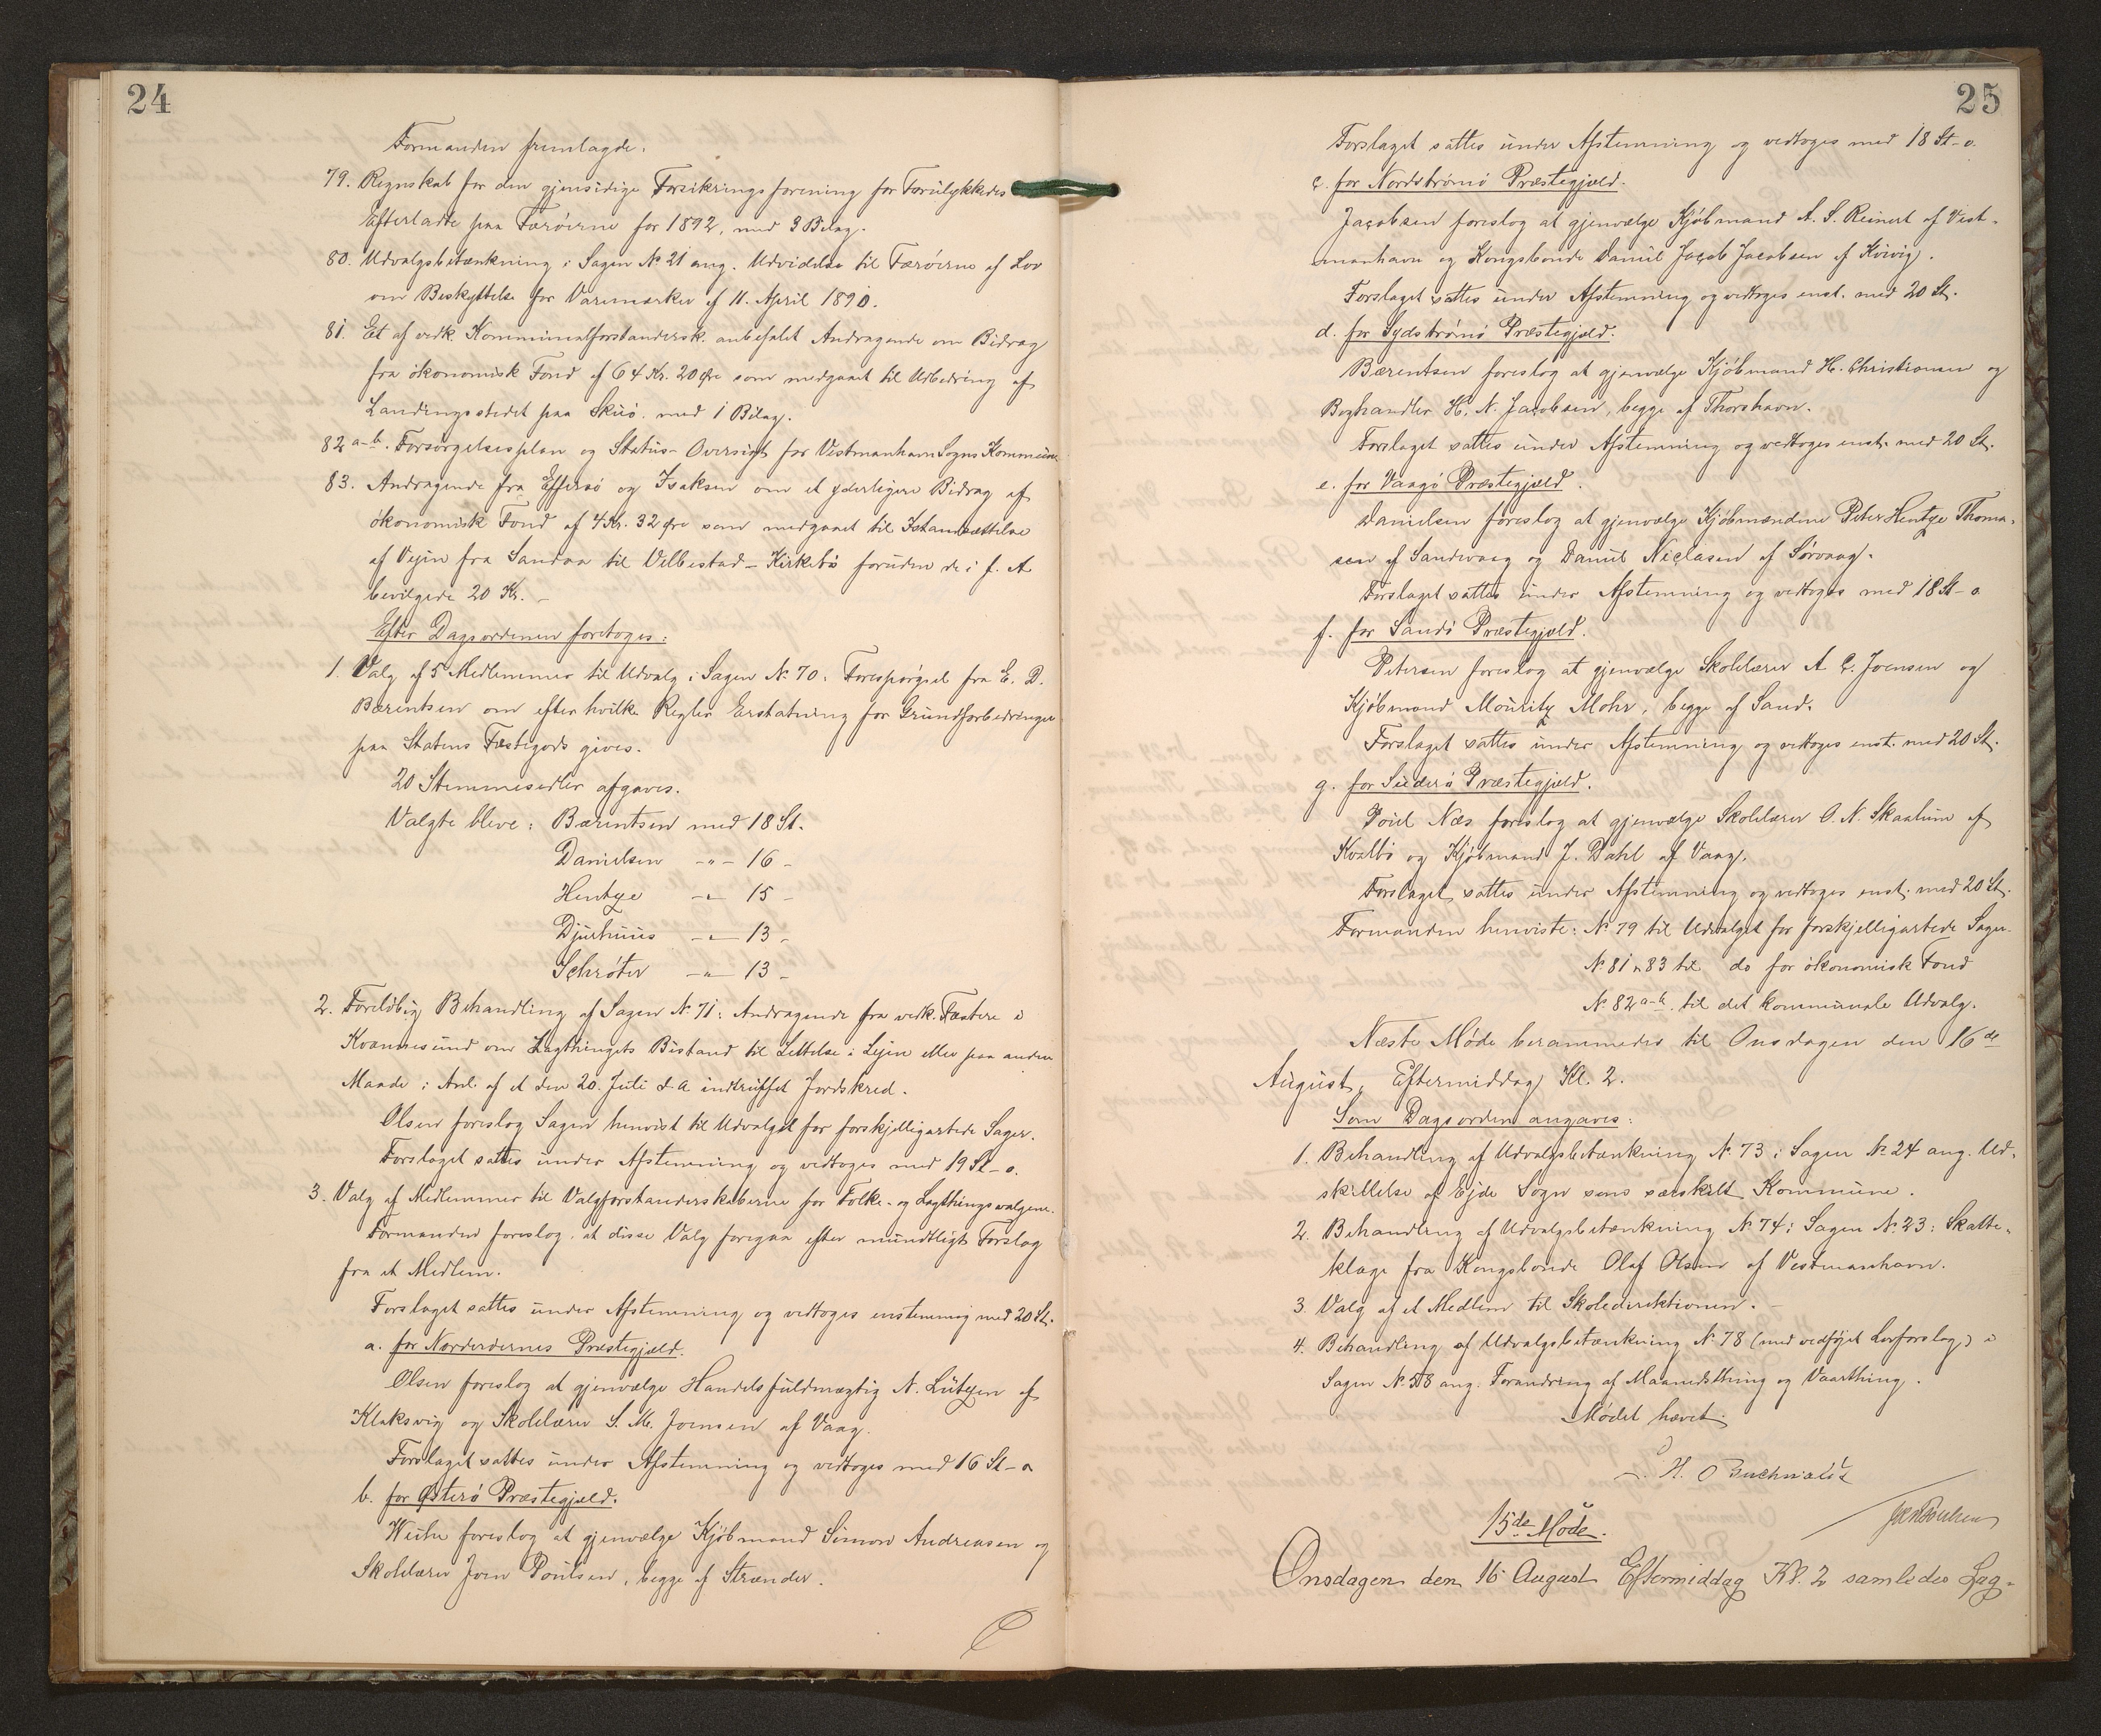 24
Formanden fremlagde:
79. Regnskab for den gjensidige Forsikringsforening for Forulykkedes
Efterladte paa Færöerne for 1892, med 3 Bilag.
80. Udvalgsbetænkning i Sagen No 21 ang. Udvidelse til Færöerne af Lov
om Beskyttelse for Varemærker af 11. April 1890.
81. Et af vedk. Kommunalforstandersk. anbefalet Andragende om Bidrag
fra ökonomisk Fond af 64 Kr. 20 Øre som medgaaet til Udbedring af
Landingsstedet paa Skuö. med 1 Bilag.
82 a-b. Forsörgelsesplan og Status-Oversigt for Vestmanhavn Sogns Kommune
83. Andragende fra Effersö og Isaksen om et yderligere Bidrag af
ökonomisk Fond af 4 Kr. 32 Øre som medgaaet til Istandsættelse
af Vejen fra Sandaa til Velbestad-Kirkebö foruden de i f. A
bevilgede 20 Kr. -
Efter Dagsordenen foretoges:
1. Valg af 5 Medlemmer til Udvalg i Sagen No 70: Forespørgsel fra E. D.
Bærentsen om efter hvilke Regler Erstatning for Grundforbedringer
paa Statens Fæstegods gives.
20 Stemmesedler afgaves.
Valgte bleve: Bærentsen med 18 St.
Danielsen -"- 16 -
Hentze -"- 15 -
Djurhuus -"- 13 -
Schröter -"- 13 -
2. Foreløbig Behandling af Sagen No 71: Andragende fra vedk. Fæstere i
Kvannesund om Lagthingets Bistand til Lettelse i Lejen eller paa anden
Maade i Anl. af et den 20. Juli d. A indtruffet Jordskred.
Olsen foreslog Sagen henvist til Udvalget for forskjelligartede Sager.
Forslaget sattes under Afstemning og vedtoges med 19 St-o.
3. Valg af Medlemmer til Valgforstanderskaberne for Folke- og Lagthingsvalgene.
Formanden foreslog, at disse Valg foregaa efter mundtligt Forslag
fra et Medlem.
Forslaget sattes under Afstemning og vedtoges enstemmig med 20 St.
a. for Norderöernes Præstegjæld.
Olsen foreslog at gjenvælge Handelsfuldmægtig N. Lützen af
Klaksvig og Skolelærer S. M. Joensen af Vaag.
Forslaget sattes under Afstemning og vedtoges med 16 St-o
b. for Österö Præstegjæld.
Weihe foreslog at gjenvælge Kjöbmand Simon Andreasen og
Skolelærer Joen Poulsen, begge af Strænder.
25
Forslaget sattes under Afstemning og vedtoges med 18 St-o.
c. for Nordströmö Præstegjæld.
Jacobsen foreslog at gjenvælge Kjöbmand A. S. Reinert af Vest-
manhavn og Kongsbonde Daniel Jacob Jacobsen af Kvivig.
Forslaget sattes under Afstemning og vedtoges enst. med 20 St.
d. for Sydströmö Præstegjæld.
Bærentsen foreslog at gjenvælge Kjöbmand H. Christiansen og
Boghandler H. N. Jacobsen, begge af Thorshavn.
Forslaget sattes under Afstemning og vedtoges enst. med 20 St.
e. for Vaagö Præstegjæld.
Danielsen foreslog at gjenvælge Kjöbmændene Peter Hentze Thoma-
sen af Sandevaag og Daniel Niclasen af Sörvaag.
Forslaget sattes under Afstemning og vedtoges med 18 St-o
f. for Sandö Præstegjæld.
Petersen foreslog at gjenvælge Skolelærer A C. Joensen og
Kjöbmand Mouritz Mohr, begge af Sand.
Forslaget sattes under Afstemning og vedtoges enst. med 20 St.
g. for Suderö Præstegjæld.
Poul Næs foreslog at gjenvælge Skolelærer O. N. Skaalum af
Kvalbö og Kjöbmand J. Dahl af Vaag.
Forslaget sattes under Afstemning og vedtoges enst. med 20 St.
Formanden henviste: No 79 til Udvalget for forskjelligartede Sager.
No 81 & 83 til do for ökonomisk Fond
No 82 a-b. til det kommunale Udvalg.
Næste Møde berammedes til Onsdagen den 16de
August, Eftermiddag Kl. 2.
Som Dagsorden angaves:
1. Behandling af Udvalgsbetænkning No 73 i Sagen No 24 ang. Ud-
skillelse af Ejde Sogn som særskilt Kommune.
2. Behandling af Udvalgsbetænkning No 74 i Sagen No 23: Skatte-
klage fra Kongsbonde Olaf Olsen af Vestmanhavn.
3. Valg af et Medlem til Skoledirektionen. -
4. Behandling af Udvalgsbetænkning No 78 (med vedföjet Lovforslag) i
Sagen No 58 ang. Forandring af Maanedsthing og Vaarthing.
Mödet hævet.
H. Buchwaldt
15de Møde.
Onsdagen den 16 August Eftermiddag Kl. 2 samledes Lag-